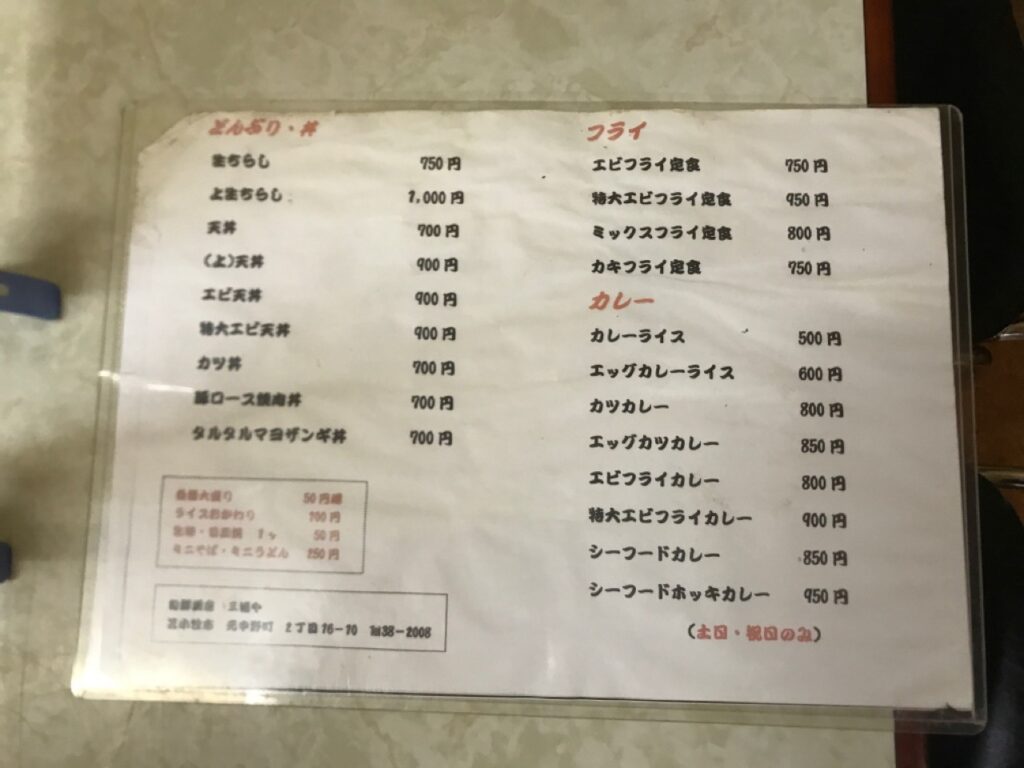 どんぶり・丼
生ちらし 750円
上生ちらし 1,000円
天丼 700円
(上)天丼 900円
エビ天丼 900円
特大エビ天丼 900円
カツ丼 700円
豚ロース焼肉丼 700円
タルタルマヨザンギ丼 700円
大盛り 50円増
ライスおかわり 円
50円
ミニそば・ミニうどん 円
苫小牧市 元中野町 2丁目16-10 ℡38-2008
フライ
エビフライ定食 750円
特大エビフライ定食 950円
ミックスフライ定食 800円
カキフライ定食 750円
カレー
カレーライス 500円
エッグカレーライス 600円
カツカレー 800円
エッグカツカレー 850円
エビフライカレー 800円
特大エビフライカレー 900円
シーフードカレー 850円
シーフードホッキカレー 950円
(土日・祝日のみ)